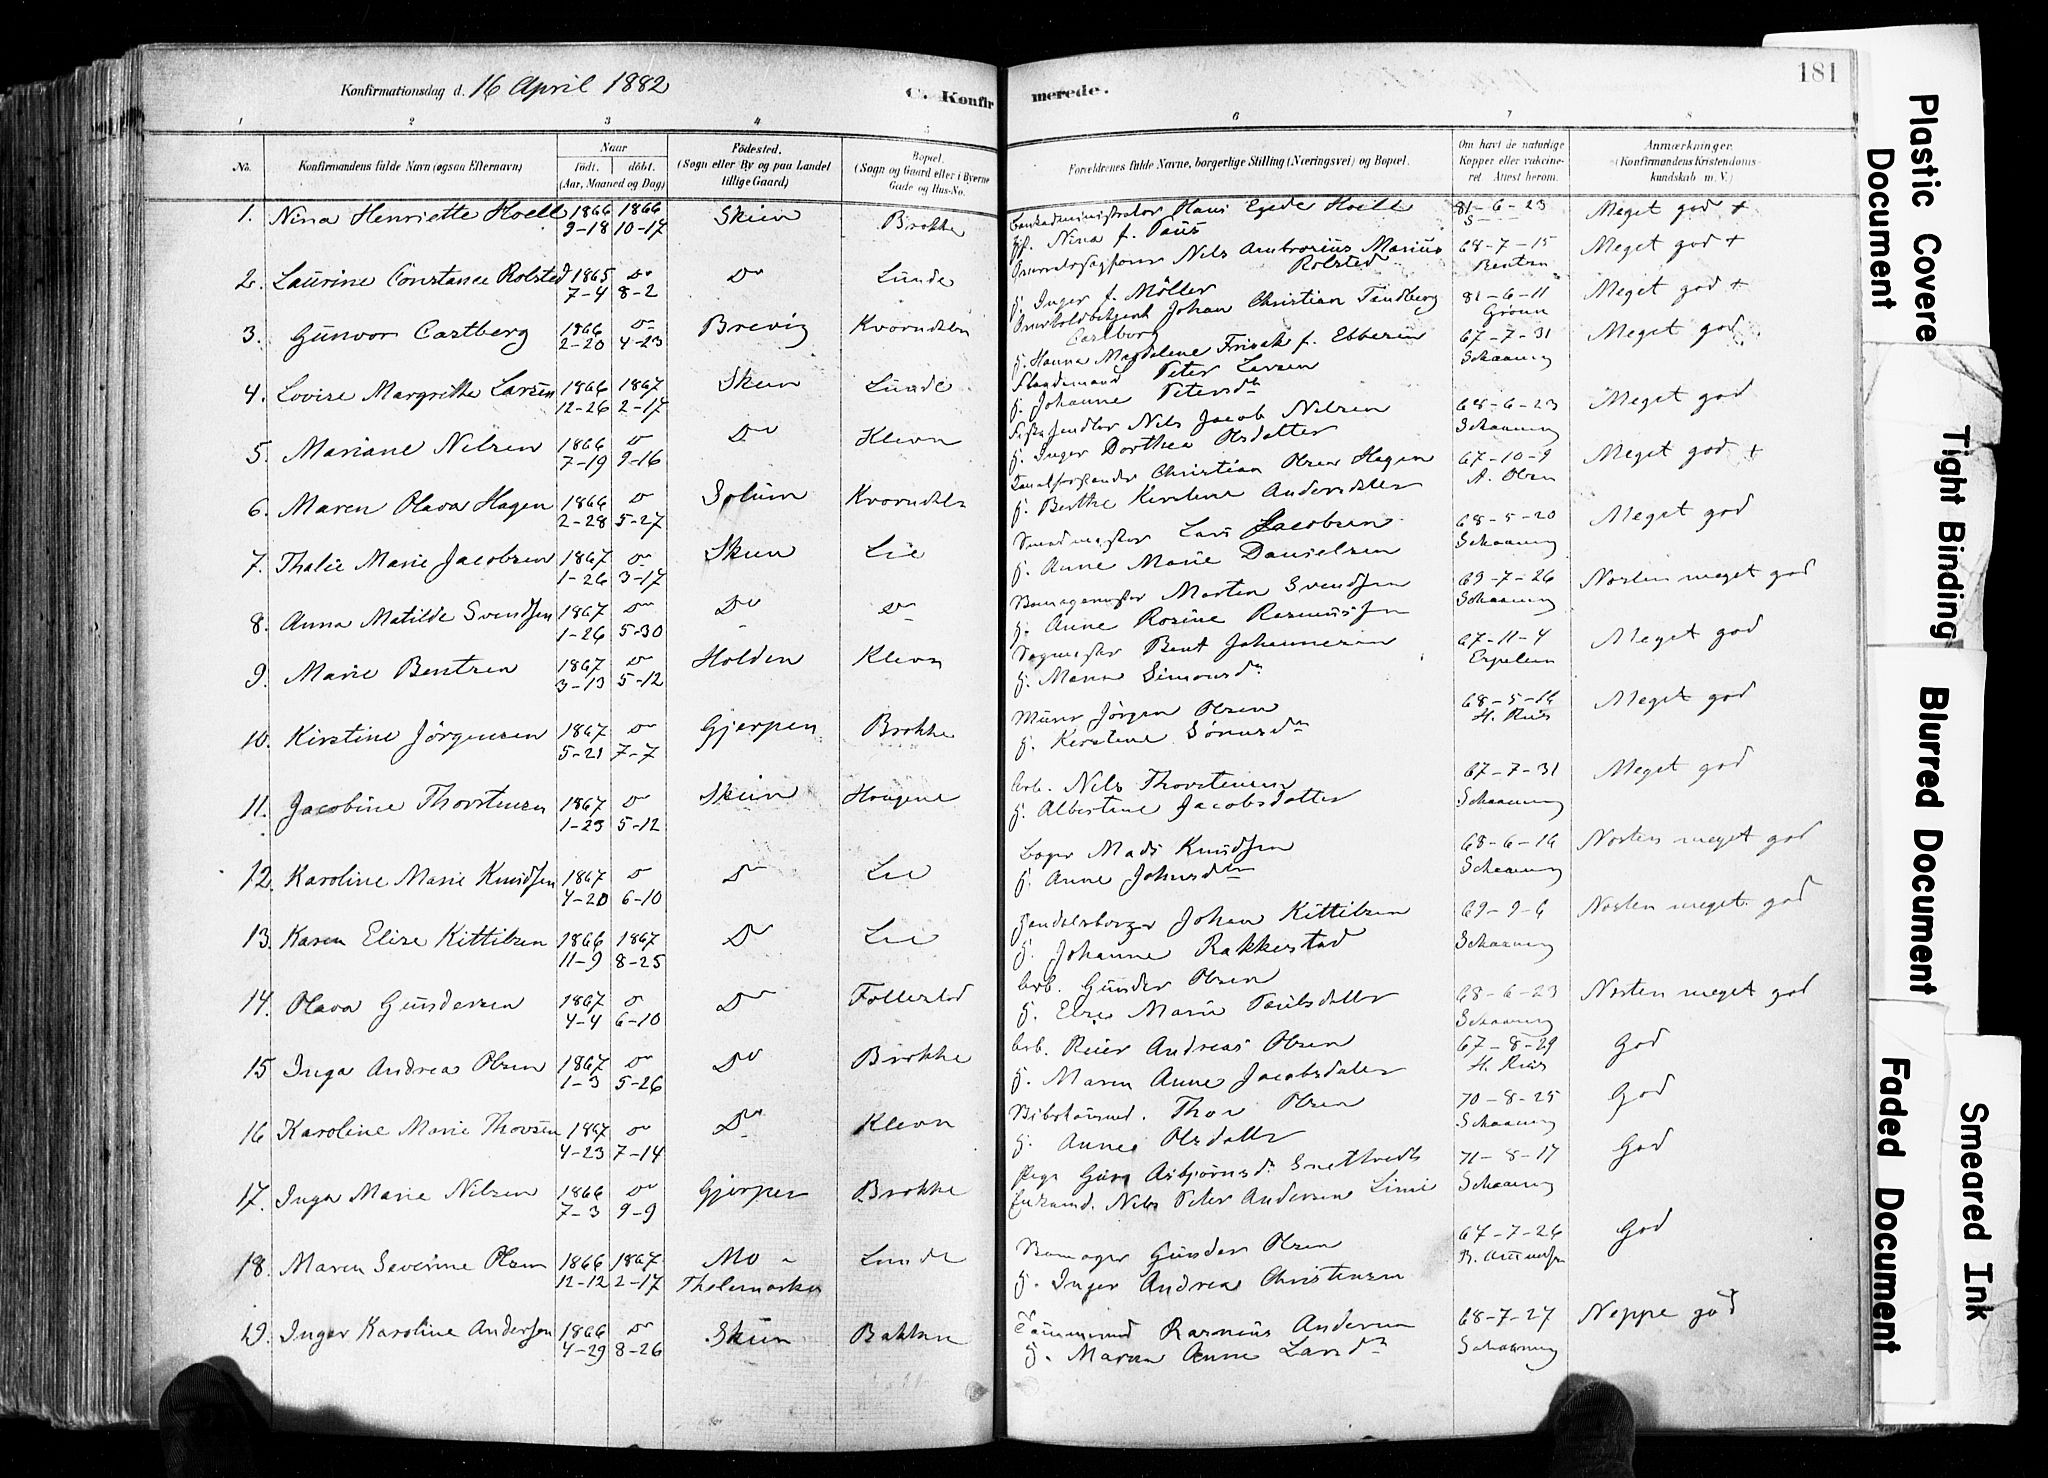 Konfirmationsdag d. 16 April 1882
C. Konfirmerede.
181
1 2 3 4 5 6 7 8
No. Konfirmandens fulde Navn (ogsaa Efternavn) Naar født. døbt. (Aar, Maaned og Dag) Fødested. (Sogn eller By og paa Landet tillige Gaard) Bopæl. (Sogn og Gaard eller i Byerne Gade og Hus-No.
Forældrenes fulde Navne, borgerlige Stilling (Næringsvei) og Bopæl. Om havt de naturlige Kopper eller vaccineret. Attest herom. Anmærkninger. (Konfirmandens Kristendomskundskab m. V.)
1. Nina Henriette Hoell 1866 1866 Skien Brokke Hans Egede Hoell 81-6-23 Meget god +
9-18 10-17 Nina f. Paus
2. Laurine Constance Rolsted 1865 Do Do Lunde Nils Ambrosius Marius Rolsted 68-7-15 Meget god +
7-4 8-2 Inger f. Möller Bentzen
3. Gunvor Castberg 1866 Do Brevig Kverndalen Johan Christian Tandberg Castberg 81-6-11 Meget god +
2-20 4-23 Hanna Magdalene Frisak f. Ebbesen Grönn
4. Lovise Margrethe Larsen 1866 1867 Skien Lunde Peter Larsen 67-7-31 Meget god
12-26 2-17 Johanne Petersdr Schaaning
5. Mariane Nilsen 1866 Do Do Kleva Nils Jacob Nilsen 68-6-23 Meget god
7-19 9-16 Inger Dorthea Olsdatter Schaaning
6. Maren Olava Hagen 1866 Do Solum Kverndalen Christian Olsen Hagen 67-10-9 Meget god +
2-28 5-27 Berthe Kirstine Andersdatter A. Olsen
7. Thalie Marie Jacobsen 1867 Do Skien Lie Lars Jacobsen 68-5-20 Meget god
1-26 3-17 Anne Marie Danielsen Schaaning
8. Anna Matilde Svendsen 1867 Do Do Do Morten Svendsen 69-7-26 Næsten meget god
1-26 5-30 Anne Rosine Rasmussen Schaaning
9. Marie Bentsen 1867 Do Holden Kleva Bent Johannesen 67-11-4 Meget god
3-13 5-12 Maren Simonsdr
10. Kirstine Jörgensen 1867 Do Gjerpen Brokke Murer Jörgen Olsen 68-5-16 Meget god
5-21 7-7 Kirstine Sörensdr H. Riis
11. Jacobine Thorstensen 1867 Do Skien Hougene Arb. Nils Thorstensen 67-7-31 Meget god
1-23 5-12 Albertine Jacobsdatter Schaaning
12. Karoline Marie Knudsen 1867 Do Do Lie Mads Knudsen 68-6-16 Næsten meget god
4-20 6-10 Anne Johnsdtr Schaaning
13. Karen Elise Kittilsen 1866 1867 Do Lie Handelsborger Johan Kittilsen 69-9-6 Næsten meget god
11-9 8-25 Johanne Rakkestad Schaaning
14. Olava Gundersen 1867 Do Do Follestad Arb. Gunder Olsen 68-6-23 Næsten meget god
4-4 6-10 Else Marie Paulsdatter Schaaning
15 Inga Andrea Olsen 1867 Do Do Brokke Arb. Reier Andreas Olsen 67-8-29 God
1-3 5-26 Maren Anne Jacobsdatter H. Riis
16 Karoline Marie Thorsen 1867 Do Do Kleva Thor Olsen 70-8-25 God
4-23 7-14 Anne Olsdatter Schaaning
17. Inga Marie Nilsen 1866 Do Gjerpen Brokke Pige Guro Asbjörnsdr Snettvedt 71-8-17 God
7-3 9-9 Nils Peter Andersen Limi Schaaning
18. Maren Severine Olsen 1866 1867 Mo - Lunde Gunder Olsen 67-7-26 God
12-12 2-17 Thelemarken Inger Andrea Christensen
19. Inger Karoline Andersen 1866 Do Skien Bakken Tömmermd Rasmus Andersen 68-7-27 Neppe god
4-29 8-26 Maren Anne Larsdr Schaaning
Plastic Covered Document
Tight Binding
Blurred Document
Faded Document
Smeared Ink